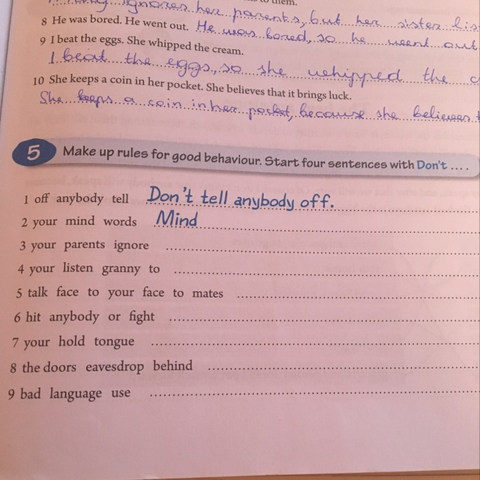 ignores her parents, but her sister lis
8 He was bored. He went out. He was bored, so he went out
9 I beat the eggs. She whipped the cream.
I beat the eggs, so she whipped the c
10 She keeps a coin in her pocket. She believes that it brings luck.
She keeps a coin in her pocket, because she believes t
5 Make up rules for good behaviour. Start four sentences with Don't ....
1 off anybody tell Don't tell anybody off.
2 your mind words Mind
3 your parents ignore
4 your listen granny to
5 talk face to your face to mates
6 hit anybody or fight
7 your hold tongue
8 the doors eavesdrop behind
9 bad language use